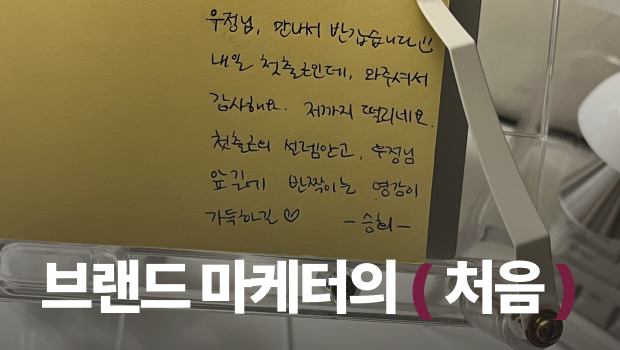 우정님, 만나서 반갑습니다
내일 첫출근인데, 와주셔서
감사해요. 저까지 떨리네요.
첫출근의 설렘안고, 우정님
앞길에 반짝이는 영감이
가득하길 ♡ -승희-
브랜드 마케터의 ( 처음 )